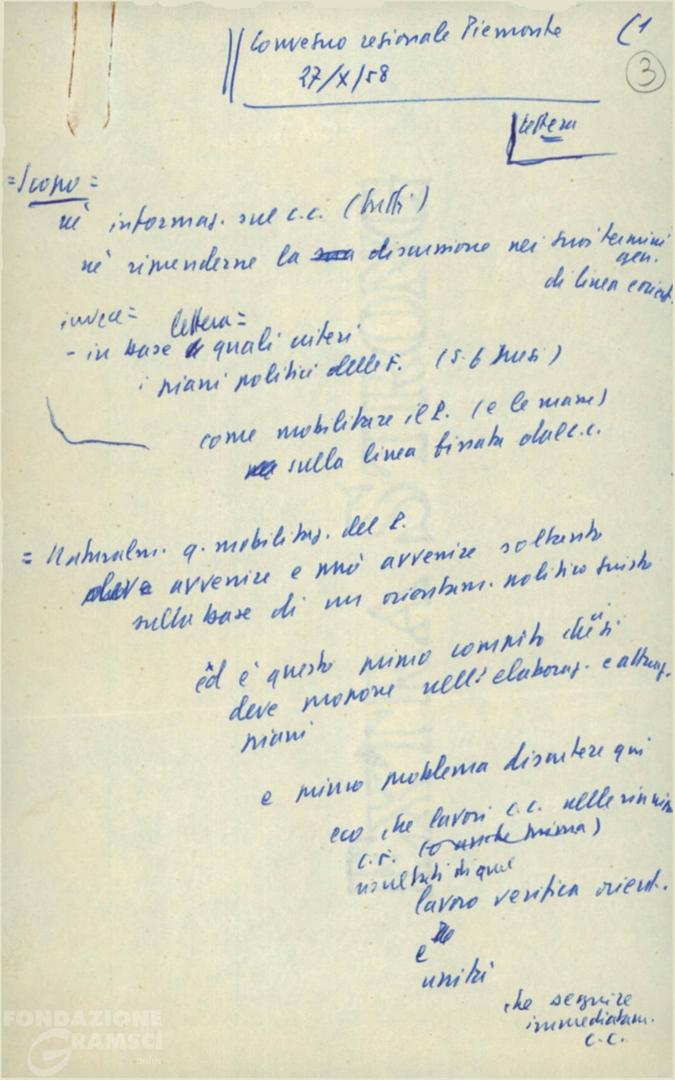 Convegno regionale Piemonte (1
27/X/58 3
lettera
= Scopo =
né informaz. sul c.c. (tutti)
né riprenderne la discussione nei suoi termini
gen.
di linea
invece = lettera =
- in base a quali criteri
i piani politici delle F. (5.6 mesi)
come mobilitare il P. (e le masse)
sulla linea fissata dal c.c.
= Naturalm. q. mobilitaz. del P.
deve avvenire e può avvenire soltanto
sulla base di un orientam. politico giusto
ed è questo primo compito che si
deve proporre nell' elaboraz. e attuaz.
piani
e primo problema discutere qui
eco che lavori c.c. nelle riunioni
c.f. (o anche prima)
risultati di quel
lavoro verifica orient.
e
unità
che seguire
immediatam.
c.c.
FONDAZIONE
GRAMSCI